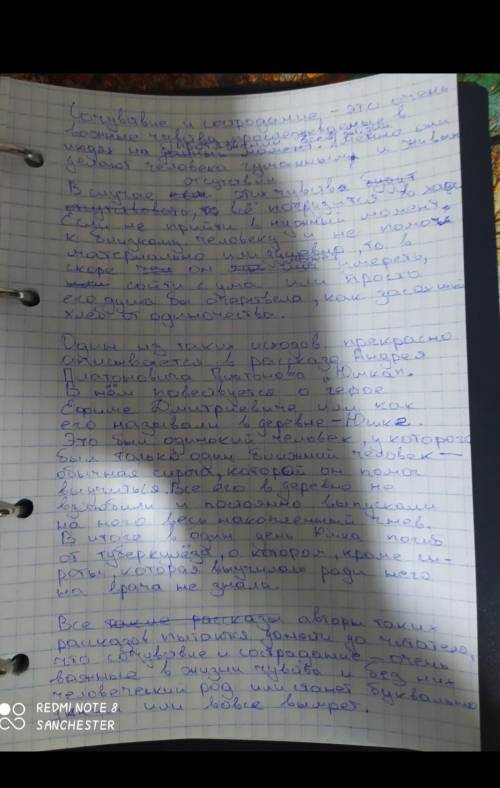 Сочувствие и сострадание, - это очень
важные чувства, в
людях на Именно они
делают человека и живым
В случае отсутствия этих чувства
всё погрузится в хаос
Если не прийти в нужный момент
к близкому человеку и не помочь
материально или душевно, то в
скоре он умереть,
сойти с ума или просто
его душа бы очерствела, как засохший
хлеб от одиночества.
Один из таких исходов прекрасно
описывается в рассказе Андрея
Платоновича Платонова "Юшка".
В нём повествуется о герое
Ефиме Дмитриевиче или как
его называли в деревне - Юшке.
Это был одинокий человек, у которого
был только один ближний человек -
обычная сирота, которой он помог
выучиться. Все его в деревне не
взлюбили и постоянно выпускали
на него весь накопленный гнев.
В итоге в один день Юшка погиб
от туберкулёза, о котором, кроме си-
роты, которая выучилась ради него
на врача не знали.
Все такие рассказы авторы таких
рассказов пытаются донести до читателя,
что сочувствие и сострадание - очень
важные в жизни чувства и без них
человеческий род или станет буквально
или вовсе вымрет.
REDMI NOTE 8
SANCHESTER